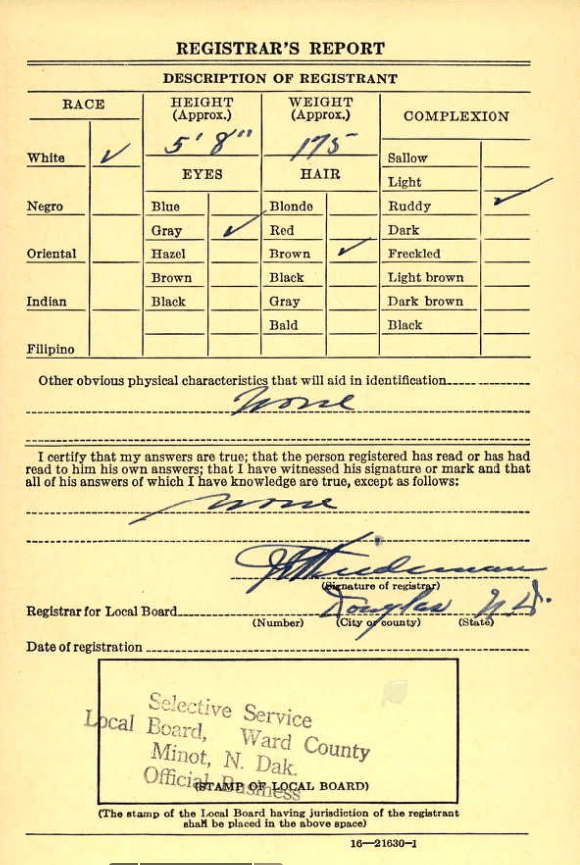 REGISTRAR'S REPORT
DESCRIPTION OF REGISTRANT
RACE HEIGHT (Approx.) WEIGHT (Approx.) COMPLEXION
5' 8" 175
White ✓ Sallow
EYES HAIR Light
Negro Blue Blonde Ruddy ✓
Gray ✓ Red Dark
Oriental Hazel Brown ✓ Freckled
Brown Black Light brown
Indian Black Gray Dark brown
Bald Black
Filipino
Other obvious physical characteristics that will aid in identification
None
I certify that my answers are true; that the person registered has read or has had
read to him his own answers; that I have witnessed his signature or mark and that
all of his answers of which I have knowledge are true, except as follows:
None
(Signature of registrar)
Registrar for Local Board Douglas N.D.
(Number) (City or county) (State)
Date of registration
Selective Service
Local Board, Ward County
Minot, N. Dak.
Official Business
(STAMP OF LOCAL BOARD)
(The stamp of the Local Board having jurisdiction of the registrant
shall be placed in the above space)
16—21630-1